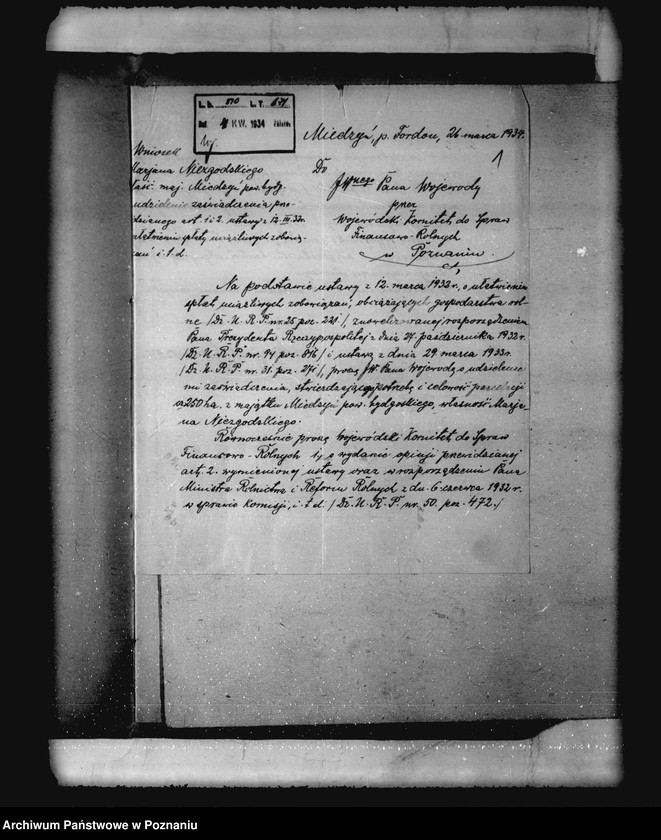 L. D. 570 L. T. 671
4 KW. 1934
Miedzyń, p. Fordon, 26 marca 1934.
1
Wniosek
Marjana Niezgodskiego
właśc. maj. Miedzyń pow. bydg.
udzielenie zaświadczenia prze-
dzianego art. 1 i 2. ustawy z 12. III. 33r.
ułatwieniu spłaty uciążliwych zobowią-
zań i. t. d.
Do
JWnego Pana Wojewody
przez
Wojewódzki Komitet do Spraw
Finansowo-Rolnych
w Poznaniu.
Na podstawie ustawy z 12. marca 1932r. o ułatwieniu
spłat uciążliwych zobowiązań, obciążających gospodarstwa rol-
ne /Dz. U. R. P. nr. 25 poz. 221/, znowelizowanej rozporządzeniem
Pana Prezydenta Rzeczypospolitej z dnia 27 października 1932r.
/Dz. U. R. P. nr. 94 poz. 816/ i ustawą z dnia 29. marca 1933r.
/Dz. U. R. P. nr. 31. poz. 271/, proszę JW Pana Wojewodę o udzielenie
mi zaświadczenia, stwierdzającego potrzebę i celowość parcelacji
250 ha. z majątku Miedzyń pow. bydgoskiego, własność Marja-
na Niezgodskiego.
Równocześnie proszę Wojewódzki Komitet do Spraw
Finansowo-Rolnych o wydanie opinji przewidzianej
art. 2. wymienionej ustawy oraz w rozporządzeniu Pana
Ministra Rolnictwa i Reform Rolnych z dn. 6 czerwca 1932r.
w sprawie komisji, i. t. d. /Dz. U. R. P. nr. 50. poz. 472./
Archiwum Państwowe w Poznaniu